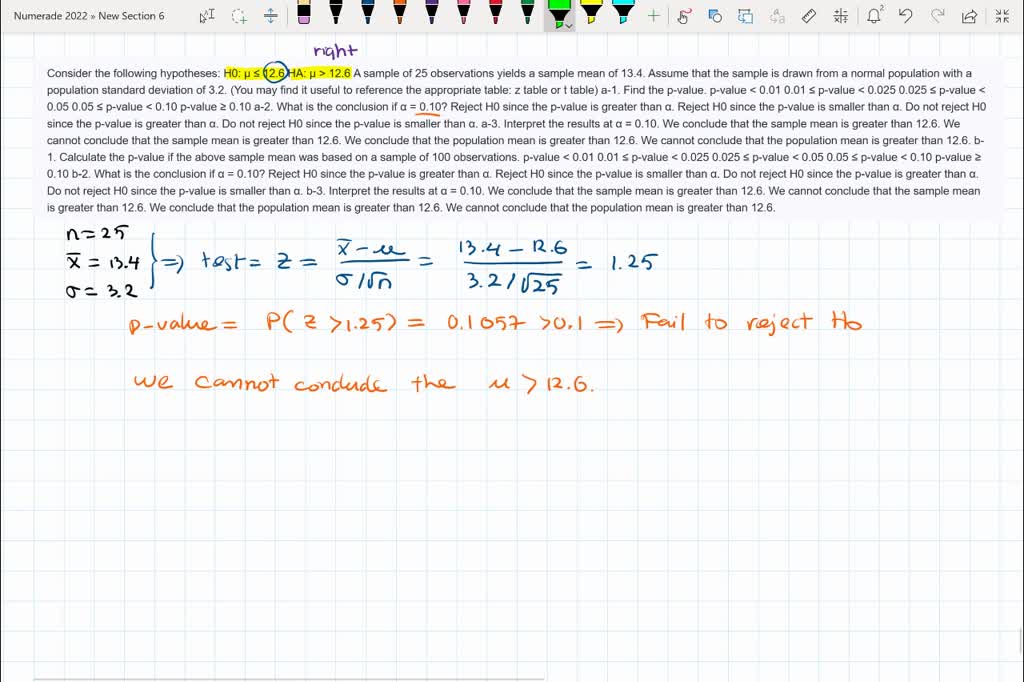 Numerade 2022 » New Section 6
right
Consider the following hypotheses: H0: μ ≤ 12.6 HA: μ > 12.6 A sample of 25 observations yields a sample mean of 13.4. Assume that the sample is drawn from a normal population with a
population standard deviation of 3.2. (You may find it useful to reference the appropriate table: z table or t table) a-1. Find the p-value. p-value < 0.01 0.01 ≤ p-value < 0.025 0.025 ≤ p-value <
0.05 0.05 ≤ p-value < 0.10 p-value ≥ 0.10 a-2. What is the conclusion if α = 0.10? Reject H0 since the p-value is greater than α. Reject H0 since the p-value is smaller than α. Do not reject H0
since the p-value is greater than α. Do not reject H0 since the p-value is smaller than α. a-3. Interpret the results at α = 0.10. We conclude that the sample mean is greater than 12.6. We
cannot conclude that the sample mean is greater than 12.6. We conclude that the population mean is greater than 12.6. We cannot conclude that the population mean is greater than 12.6. b-
1. Calculate the p-value if the above sample mean was based on a sample of 100 observations. p-value < 0.01 0.01 ≤ p-value < 0.025 0.025 ≤ p-value < 0.05 0.05 ≤ p-value < 0.10 p-value ≥
0.10 b-2. What is the conclusion if α = 0.10? Reject H0 since the p-value is greater than α. Reject H0 since the p-value is smaller than α. Do not reject H0 since the p-value is greater than α.
Do not reject H0 since the p-value is smaller than α. b-3. Interpret the results at α = 0.10. We conclude that the sample mean is greater than 12.6. We cannot conclude that the sample mean
is greater than 12.6. We conclude that the population mean is greater than 12.6. We cannot conclude that the population mean is greater than 12.6.
n = 25
x̄ = 13.4
σ = 3.2
⇒ test = z = (x̄ - μ)/(σ/√n) = (13.4 - 12.6)/(3.2/√25) = 1.25
p-value = P( z > 1.25) = 0.1057 > 0.1 ⇒ Fail to reject H0
we cannot conclude the μ > 12.6.